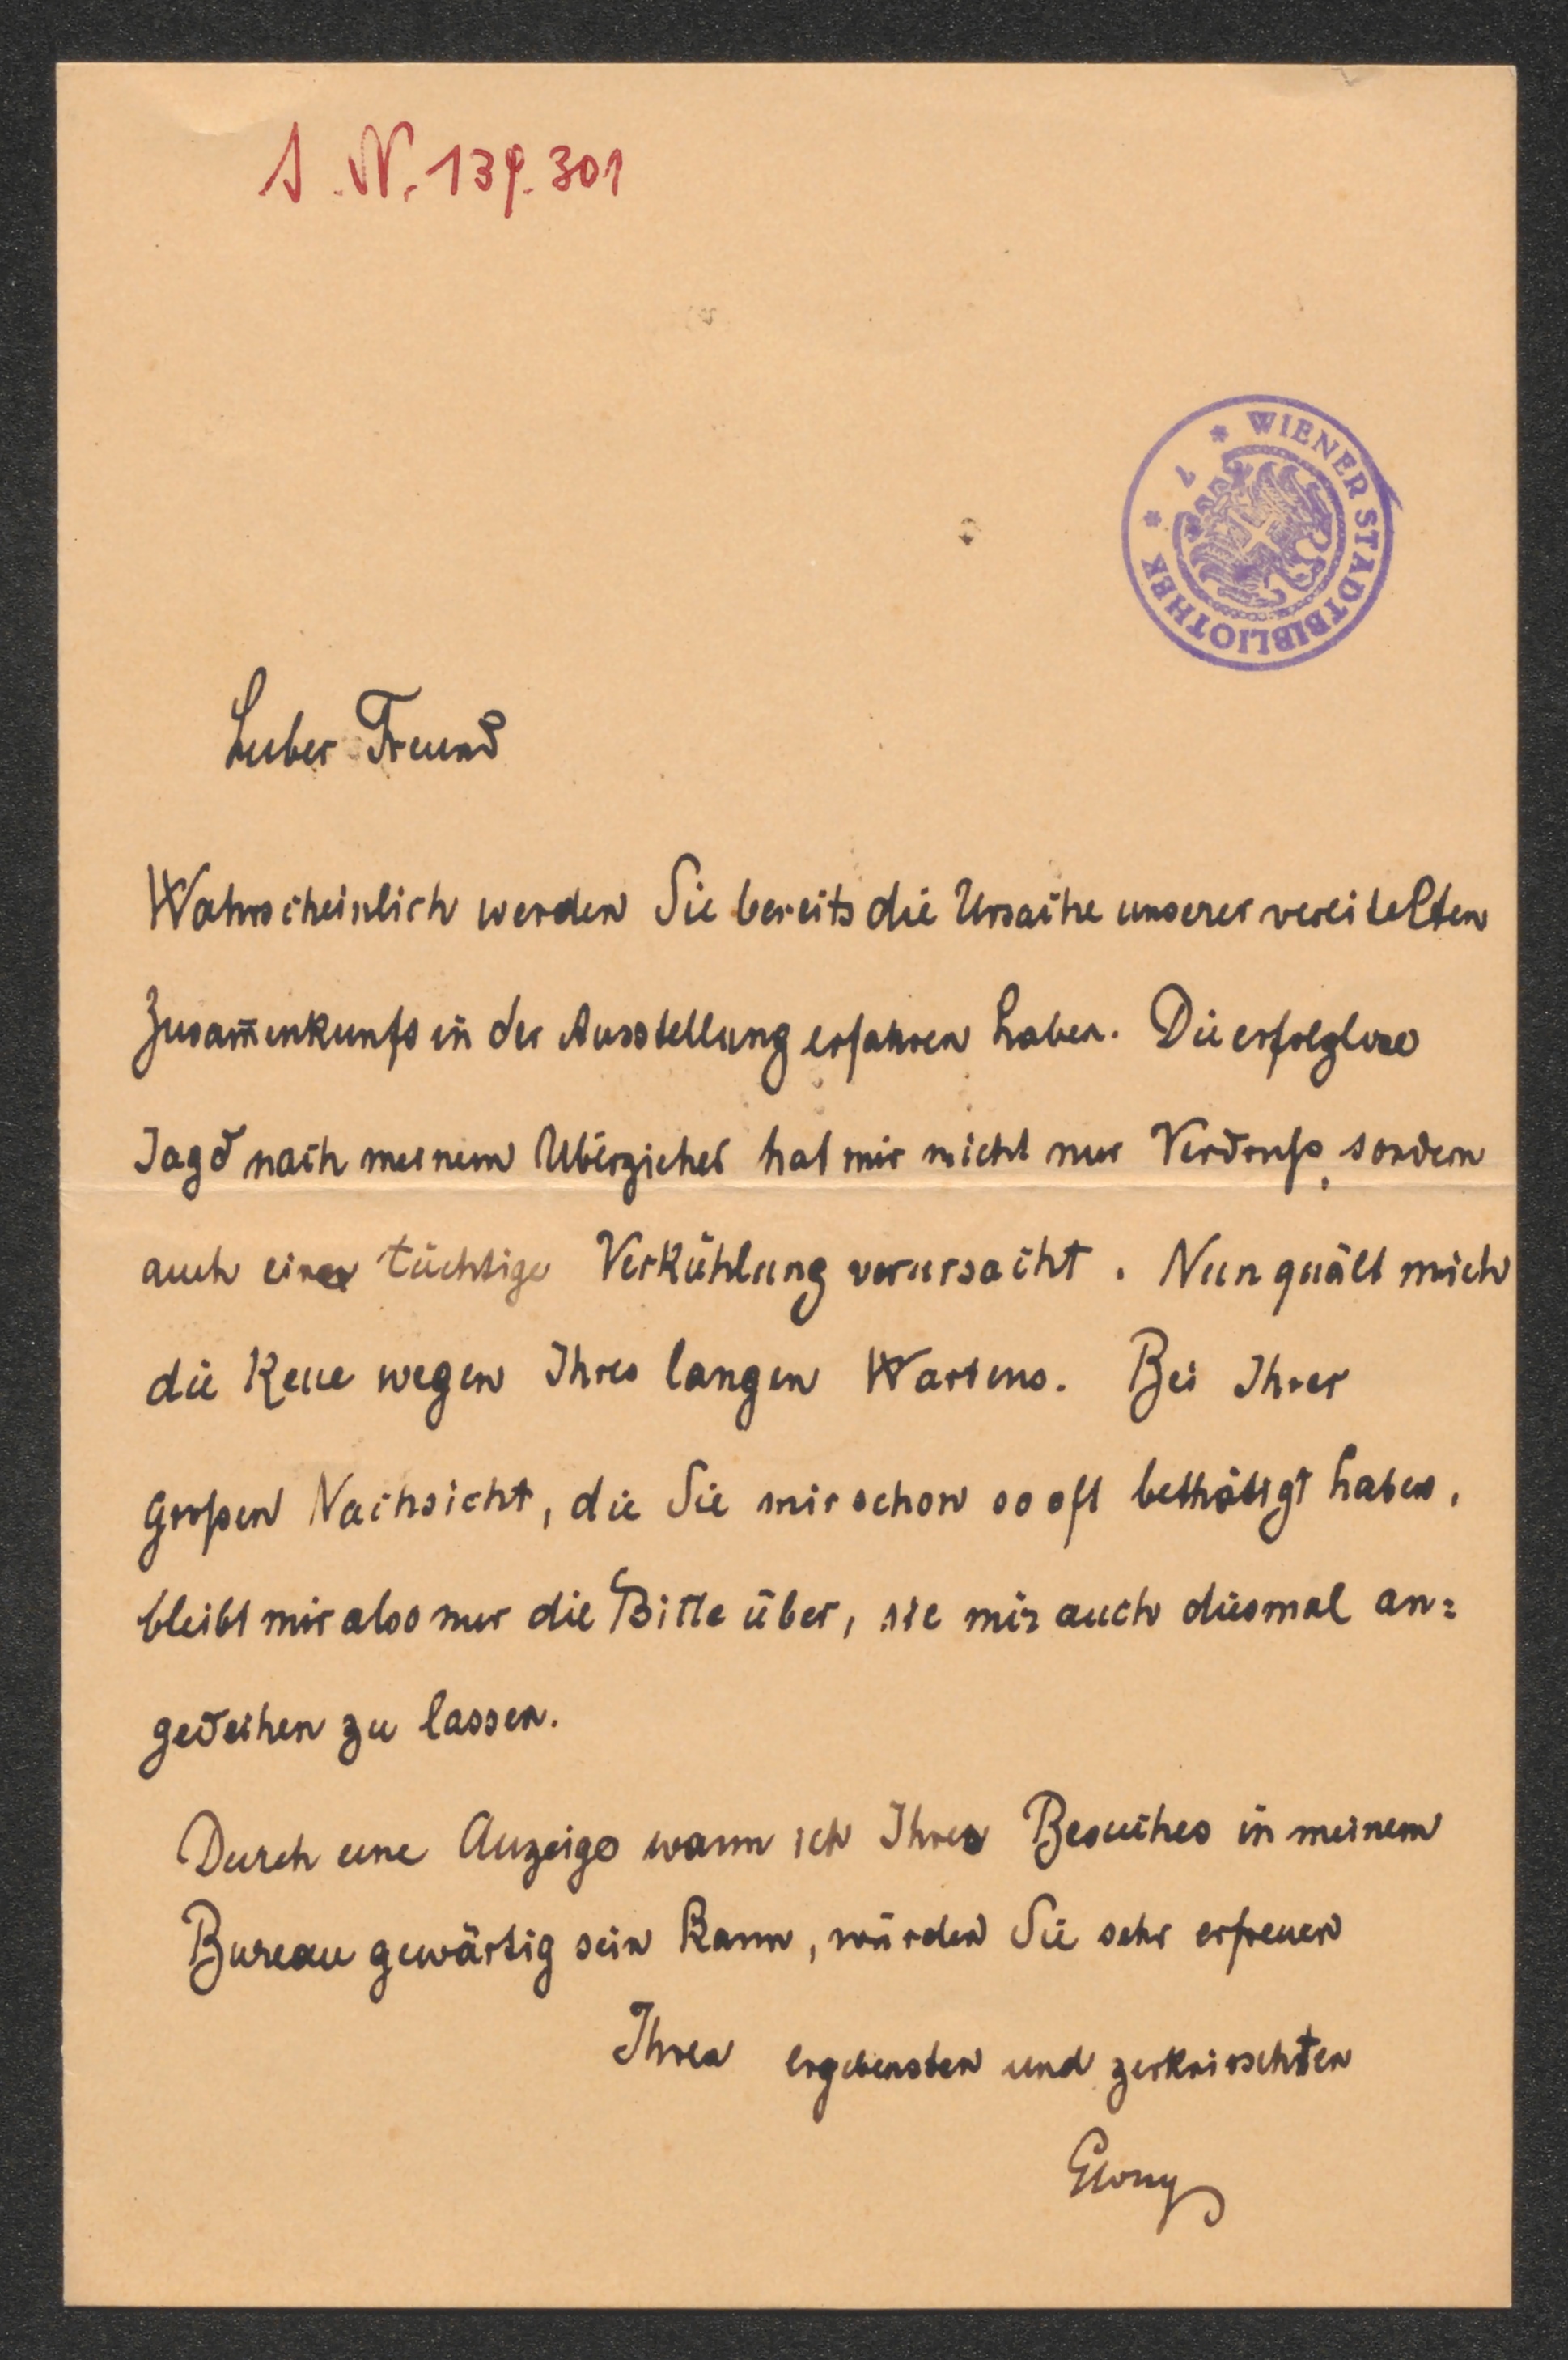 I.N. 139.301
* WIENER STADTBIBLIOTHEK *
Lieber Freund
Wahrscheinlich werden Sie bereits die Ursache unserer vereitelten
Zusam̅enkunft in der Ausstellung erfahren haben. Die erfolglose
Jagd nach meinem Überzieher hat mir nicht nur Verdruß, sondern
auch eine tüchtige Verkühlung verursacht. Nun quält mich
die Reue wegen Ihres langen Wartens. Bei Ihrer
großen Nachsicht, die Sie mir schon so oft bethätigt haben,
bleibt mir also nur die Bitte über, sie mir auch diesmal an=
gedeihen zu lassen.
Durch eine Anzeige wann ich Ihres Besuches in meinem
Bureau gewärtig sein kann, würden Sie sehr erfreuen
Ihren ergebensten und zerknirschten
Glossy